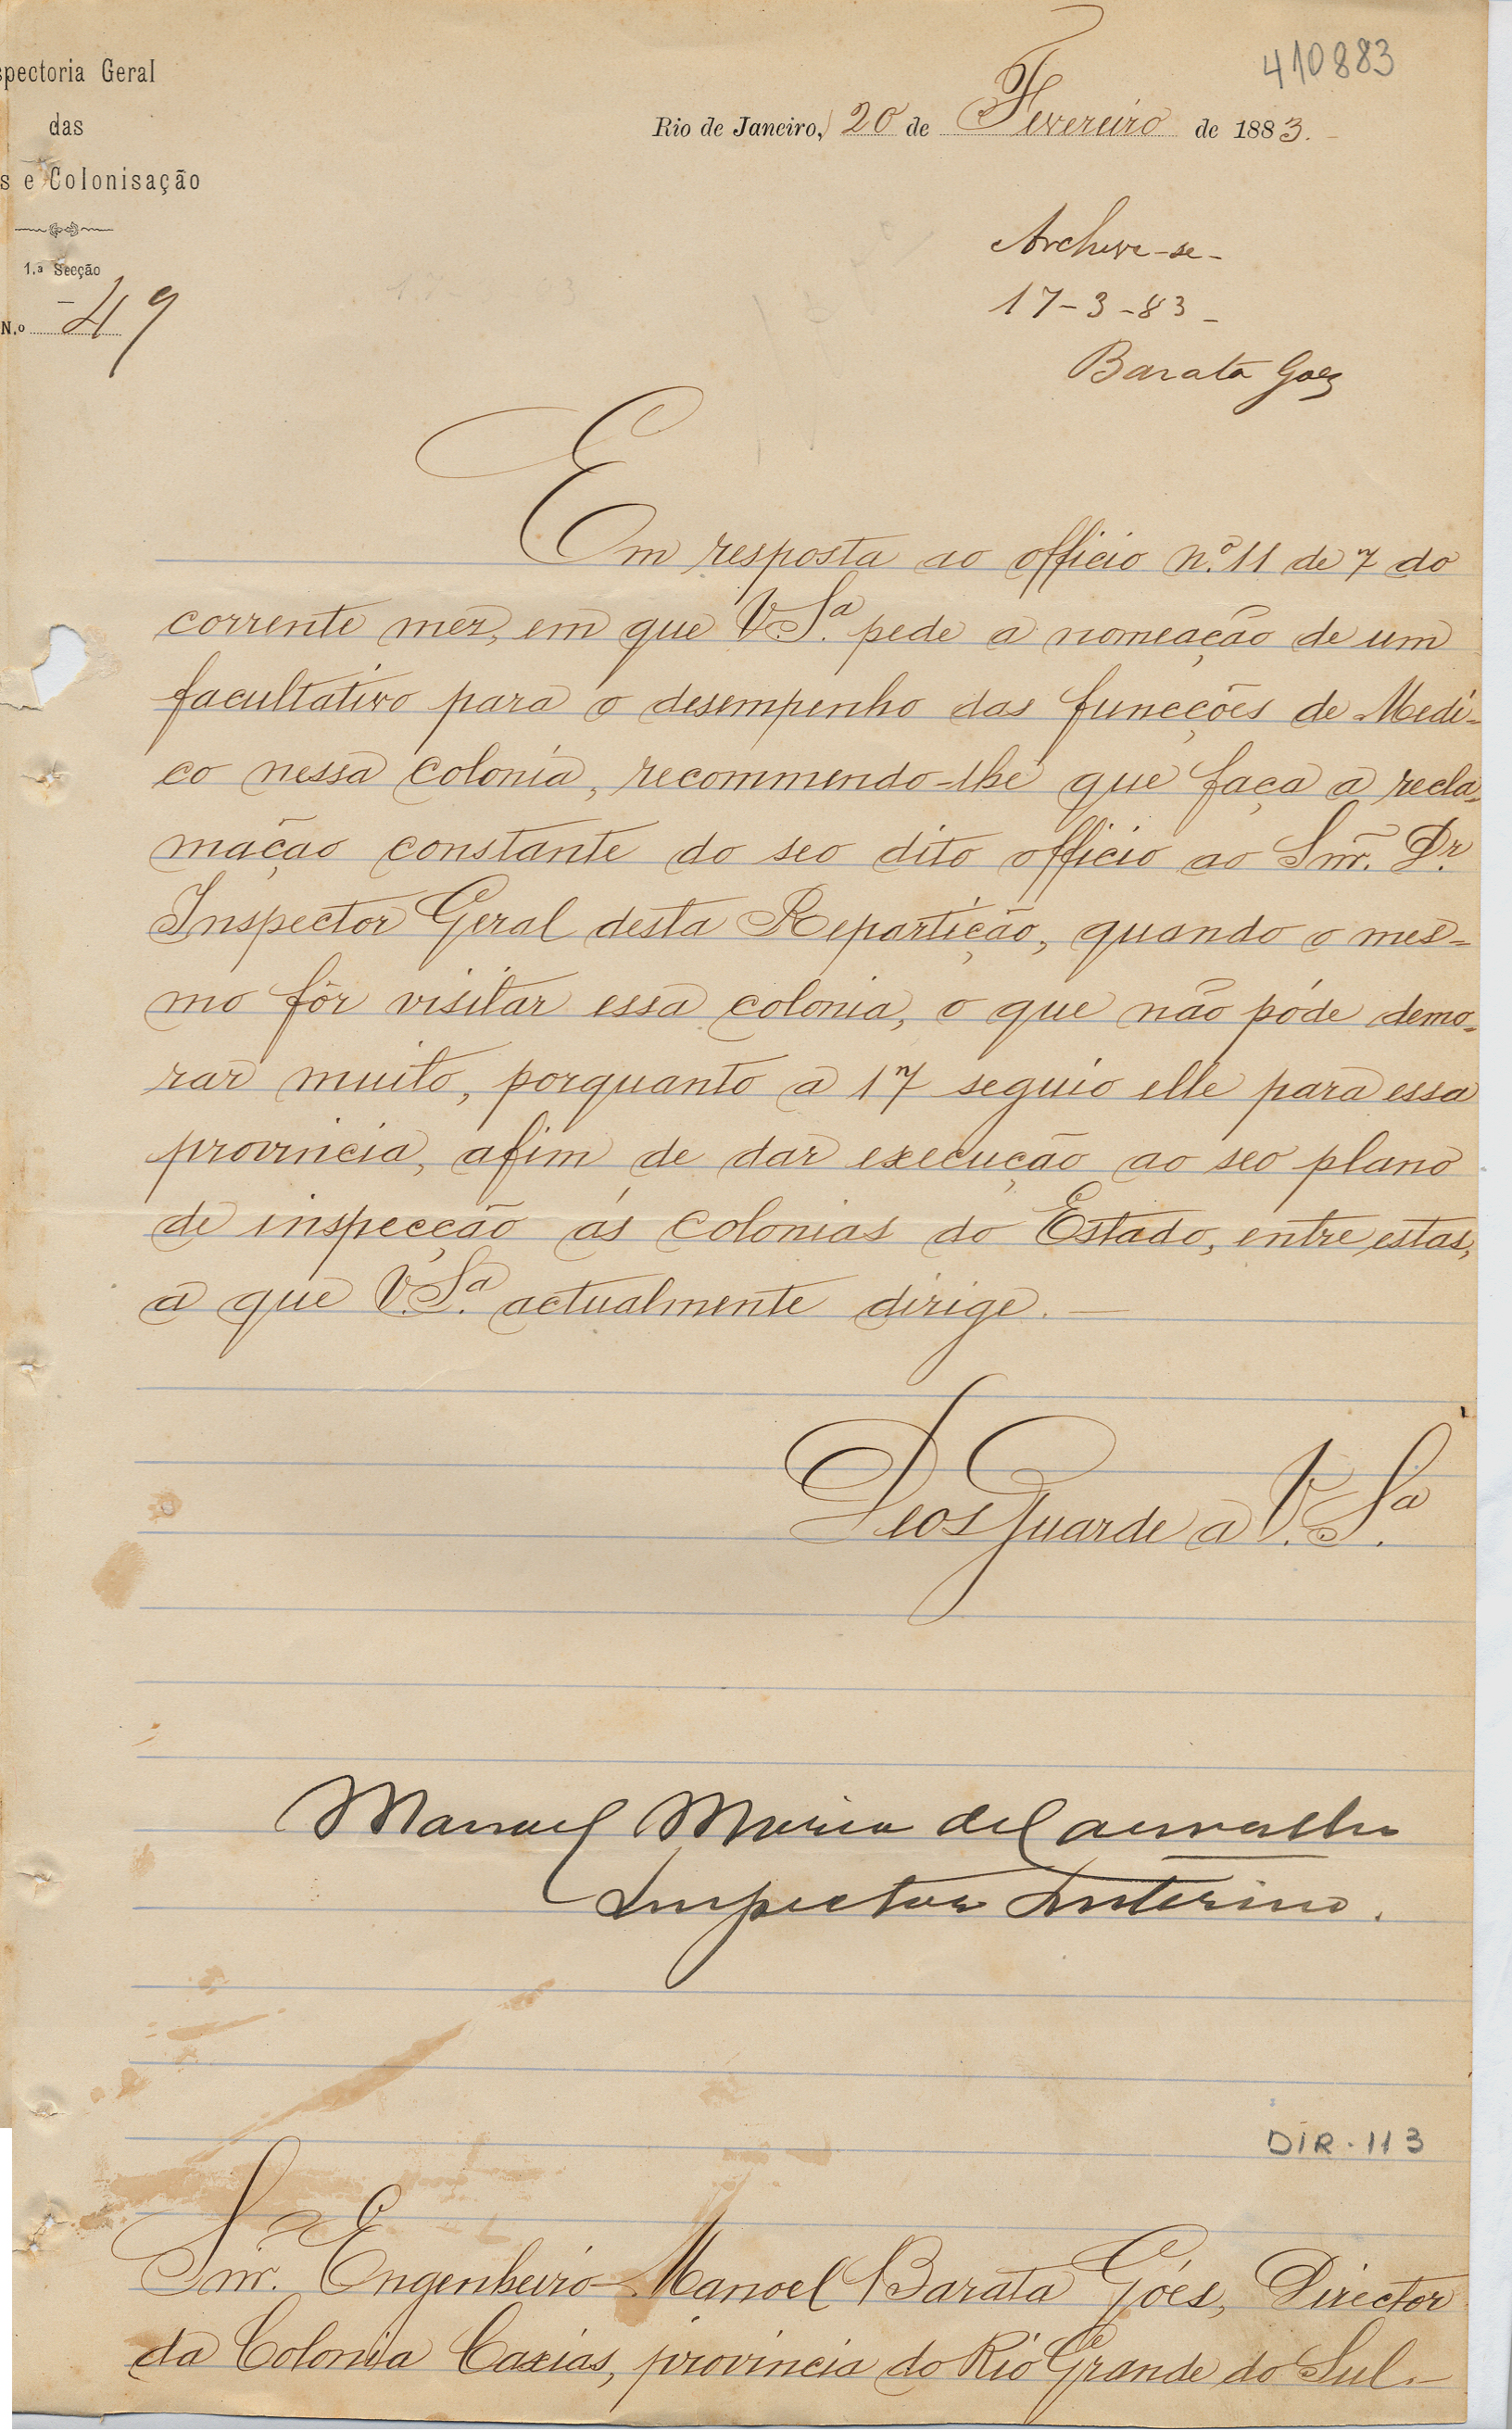 410883
spectoria Geral
das
s e Colonisação
1.a Secção
N.o 49
Rio de Janeiro, 20 de Fevereiro de 1883.
Archive-se-
17-3-83-
Barata Goes
Em resposta ao officio n.º 11 de 7 do
corrente mez, em que V.S.ª pede a nomeação de um
facultativo para o desempenho das funcções de Medi-
co nessa colonia, recommendo-lhe que faça a recla-
mação constante do seo dito officio ao Snr. Dr.
Inspector Geral desta Repartição, quando o mes=
mo fôr visitar essa colonia, o que não póde demo-
rar muito, porquanto a 17 seguio elle para essa
provincia, afim de dar execução ao seo plano
de inspecção ás colonias do Estado, entre estas,
a que V.S.ª actualmente dirige.—
Deos Guarde a V. S.ª
Manuel Maria de Carvalho
Inspector Interino.
DIR-113
Snr. Engenheiro Manoel Barata Góes, Director
da Colonia Caxias, provincia do Rio Grande do Sul.-